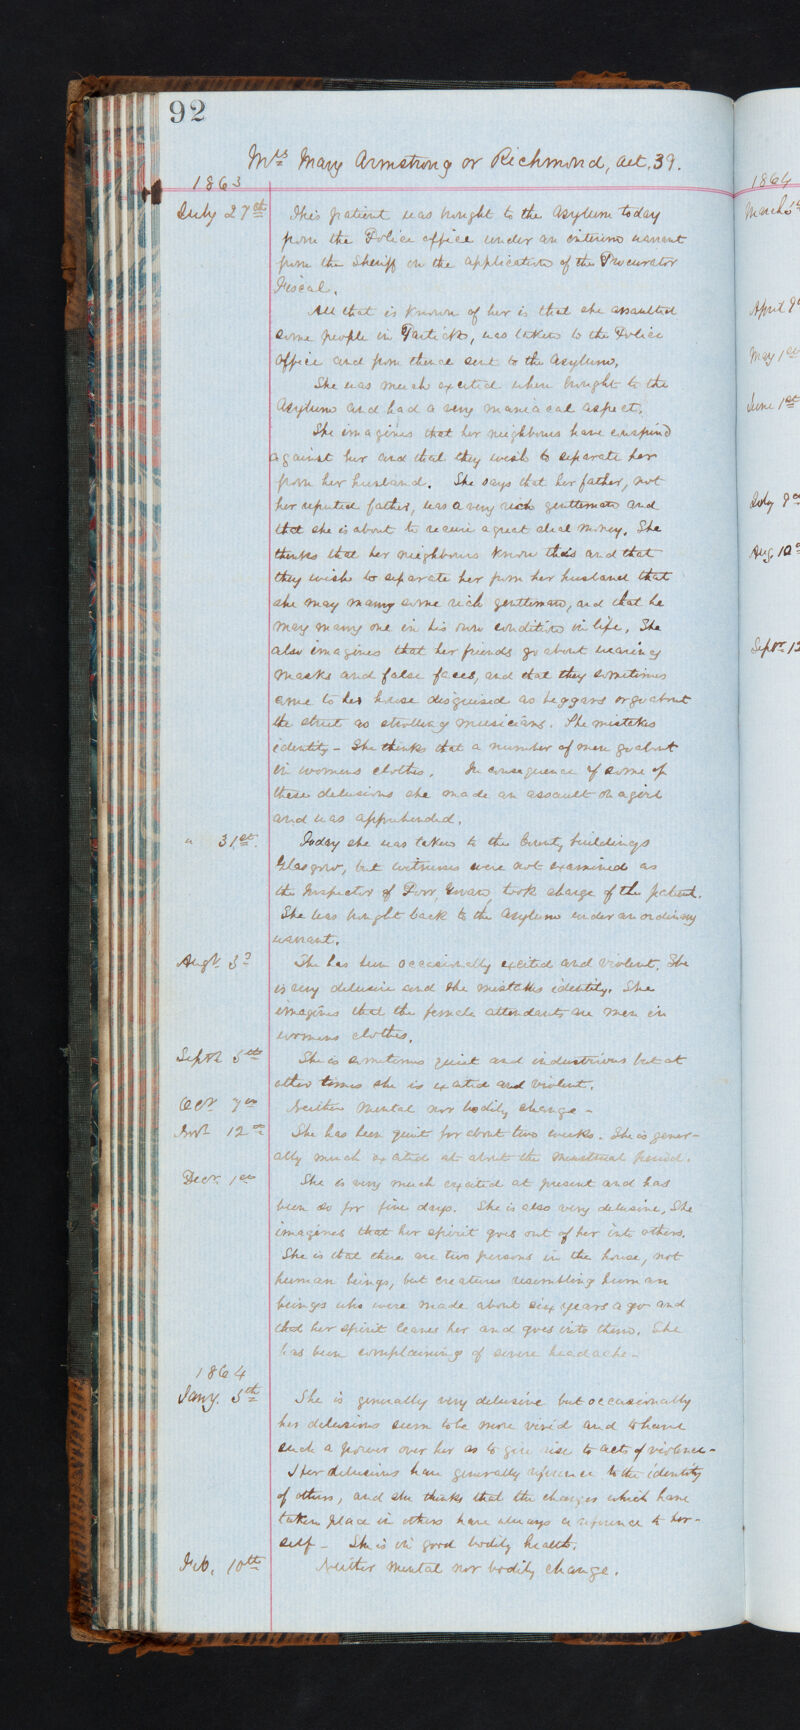 92
Mrs Mary Armstrong or Richmond, aet. 39.
1863
July 27th This patient was brought to the Asylum today
from the Police office under an interim warrant
from the Sheriff on the application of the Procurator
Fiscal.
All that is known of her is that she assaulted
some people in Partick, was taken to the Police
Office and from thence sent to the Asylum.
She was much excited when brought to the
Asylum and had a very maniacal aspect.
She imagines that her neighbours have conspired
against her and that they wish to separate her
from her husband. She says that her father, not
her reputed father, was a very rich gentleman and
that she is about to receive a great deal money. She
thinks that her neighbours know this and that
they wish to separate her from her husband that
she may marry some rich gentleman, and that he
may marry one in his own condition in life. She
also imagines that her friends go about wearing
masks and false faces, and that they sometimes
come to her house disguised as beggars or go about
the street as strolling musicians. She mistakes
identity - She thinks that a number of men go about
in womens clothes. In consequence of some of
these delusions she made an assault on a girl
and was apprehended.
" 31st. Today she was taken to the County buildings
Glasgow, but witnesses were not examined as
the Inspector of Poor, Govan, took charge of the patient.
She was brought back to the Asylum under an ordinary
warrant.
Augt. 3d She has been occasionally excited and violent. She
is very delusive and she mistakes identity. She
imagines that the female attendants are men in
womens clothes.
Septr. 5th She is sometimes quiet and industrious but at
other times she is excited and violent.
Octr 7th Neither mental nor bodily change -
Novr. 12th She has been quiet for about two weeks. She is gener-
ally much excited at about the menstrual period.
Decr. 1st She is very much excited at present and has
been so for five days. She is also very delusive, She
imagines that her spirit goes out of her into others.
She is that there are two persons in the house, not
human beings, but creatures resembling human
beings who were made about six years ago and
that her spirit leaves her and goes into them. She
has been complaining of severe headache.
1864
Jany. 5th She is generally very delusive but occasionally
her delusions seem to be more vivid and to have
such a power over her as to give rise to acts of violence -
Her delusions have generally reference to the identity
of others, and she thinks that the changes which have
taken place in others have always a reference to her-
self - She is in good bodily health.
Feb. 10th Neither mental nor bodily change.
1864
March
April
May 1st
June 1st
July
Aug. 10
Septr 12